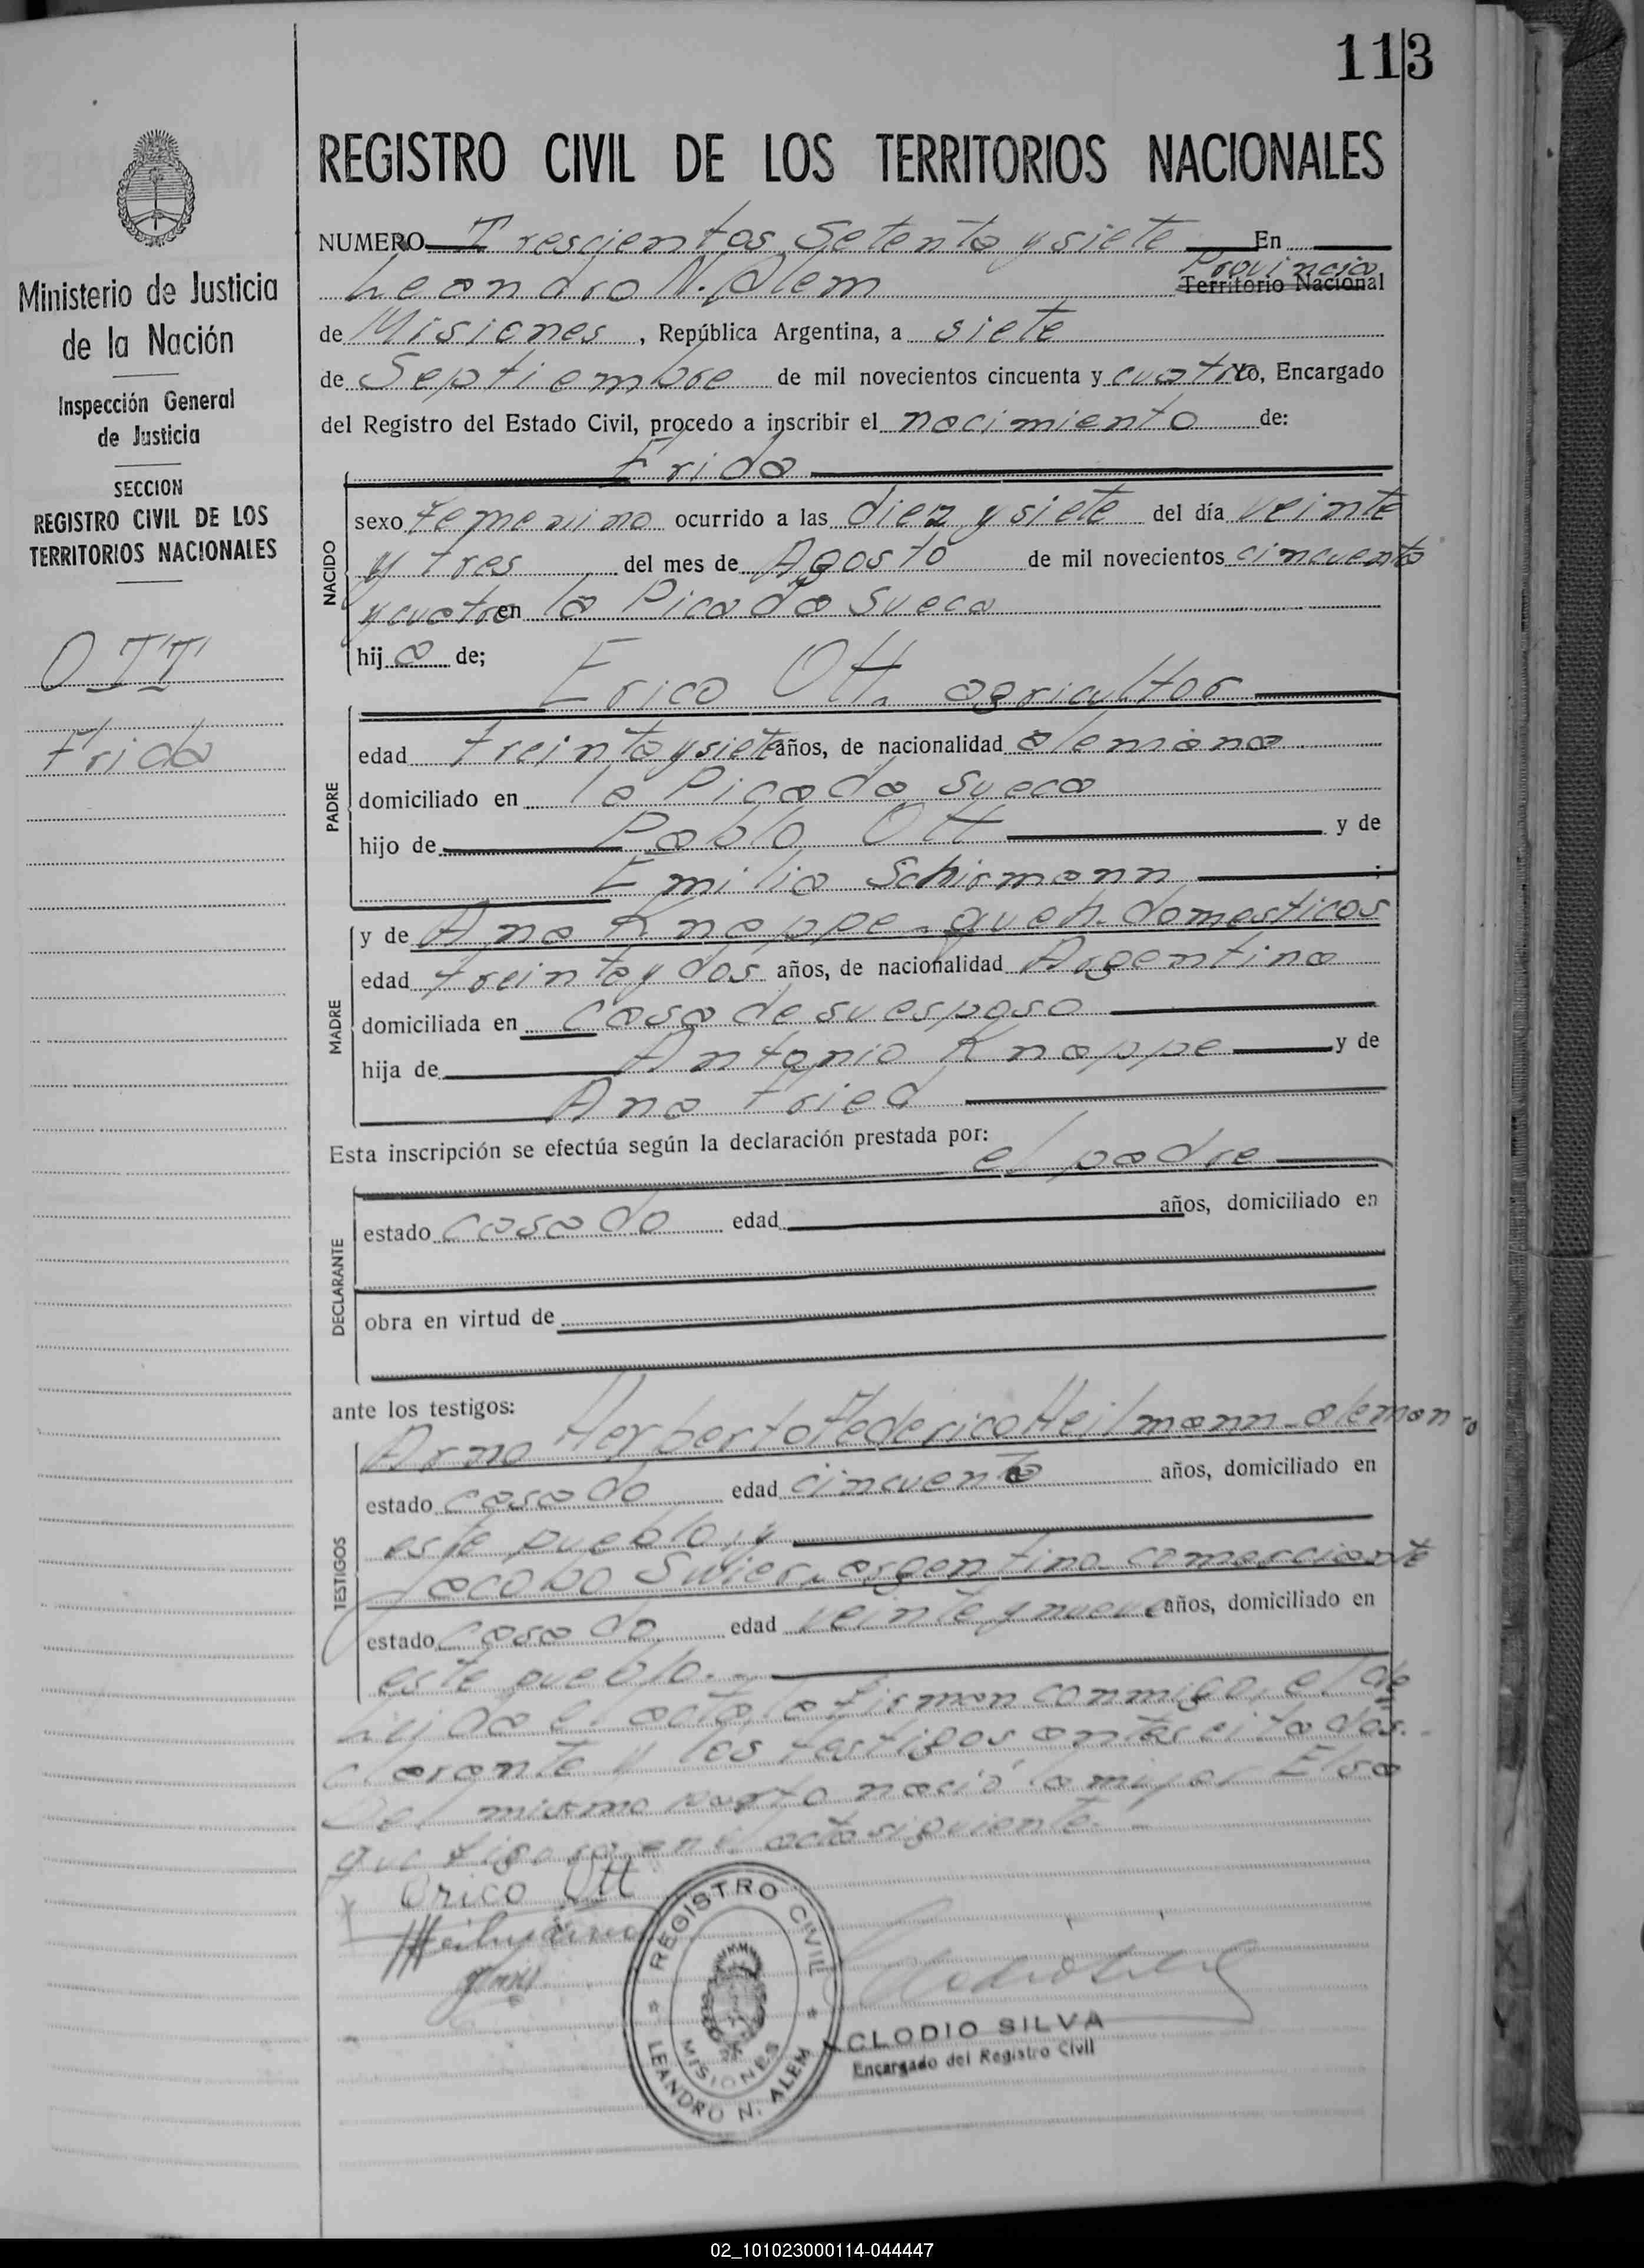 113
REGISTRO CIVIL DE LOS TERRITORIOS NACIONALES
Ministerio de Justicia
de la Nación
Inspección General
de Justicia
SECCION
REGISTRO CIVIL DE LOS
TERRITORIOS NACIONALES
OTT
Frida
NUMERO Trescientos Setenta y siete En
Leandro N. Alem Provincia Territorio Nacional
de Misiones, República Argentina, a siete
de Septiembre de mil novecientos cincuenta y cuatro Yo, Encargado
del Registro del Estado Civil, procedo a inscribir el nacimiento de:
Frida
NACIDO
sexo Femenino ocurrido a las diez y siete del día veinte
y tres del mes de Agosto de mil novecientos cincuenta
y cuatro en la Picada Sueca
hija de;
PADRE
Erico Ott. agricultor
edad treinta y siete años, de nacionalidad alemana
domiciliado en la Picada Sueca
hijo de Pablo Ott y de
Emilia Schirmann;
MADRE
y de Ana Knappe. queh. domesticos
edad treinta y dos años, de nacionalidad Argentina
domiciliada en casa de su esposo
hija de Antonio Knappe y de
Ana Fried
Esta inscripción se efectúa según la declaración prestada por:
el padre
DECLARANTE
estado casado edad años, domiciliado en
obra en virtud de
ante los testigos:
TESTIGOS
Arno Herberto Federico Heilmann-aleman-
estado casado edad cincuenta años, domiciliado en
este pueblo, y
Jacobo argentino comerciante
estado casado edad veinte y nueve años, domiciliado en
este pueblo.-
Leida el acta la firman conmigo, el de
clarante y los testigos antes citados.-
Del mismo parto nació la mujer Elsa
que figura en el acta siguiente.-
Erico Ott
REGISTRO CIVIL
MISIONES
LEANDRO N. ALEM
CLODIO SILVA
Encargado del Registro Civil
02_101023000114-044447